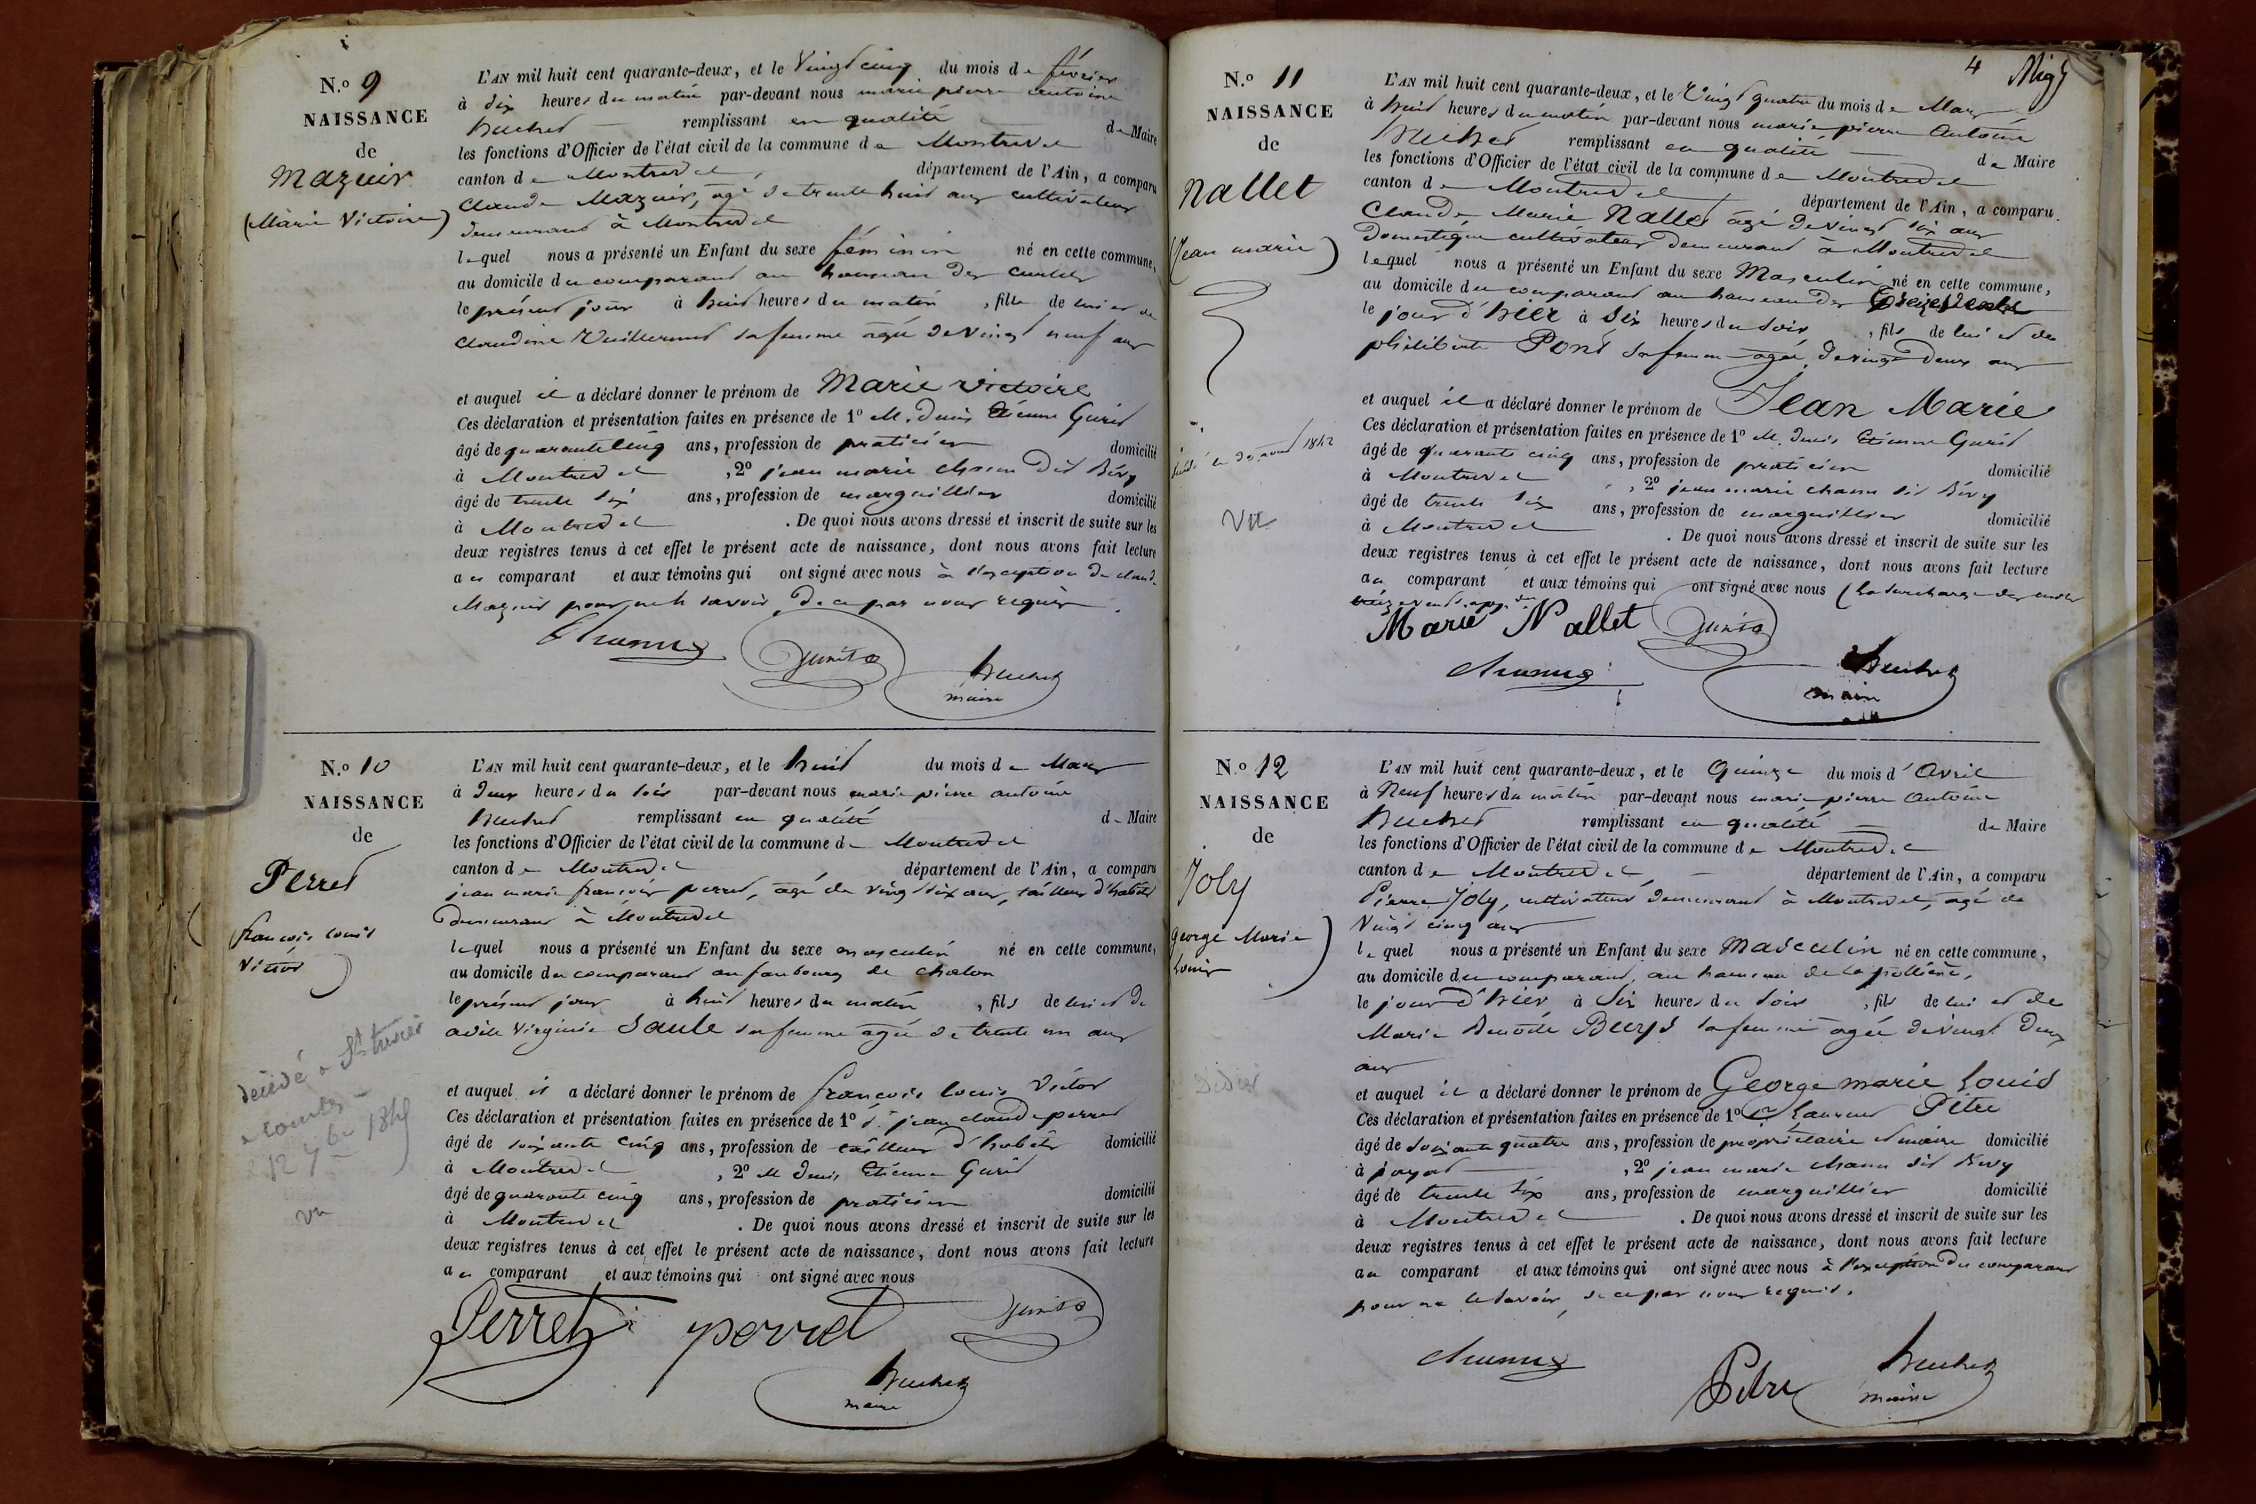 N.o 9
NAISSANCE
de
Mazuir
(Marie Victoire)
L'AN mil huit cent quarante-deux, et le Vingt cinq du mois de février
à dix heures du matin par-devant nous marie pierre antoine
huchet remplissant en qualité de Maire
les fonctions d'Officier de l'état civil de la commune de Montrevel
canton de Montrevel, département de l'Ain, a comparu
Claude Mazuir, agé de trente huit ans cultivateur
demeurant à Montrevel
lequel nous a présenté un Enfant du sexe féminin né en cette commune,
au domicile du comparant au hameau des
le présent jour à huit heures du matin, fille de lui et de
claudine Vuillermet sa femme agée de vingt neuf ans
et auquel il a déclaré donner le prénom de Marie victoire
Ces déclaration et présentation faites en présence de 1o M. Denis Etienne
âgé de quarante cinq ans, profession de praticien domicilié
à Montrevel, 2o jean marie dit
âgé de trente six ans, profession de marguillier domicilié
à Montrevel. De quoi nous avons dressé et inscrit de suite sur les
deux registres tenus à cet effet le présent acte de naissance, dont nous avons fait lecture
au comparant et aux témoins qui ont signé avec nous à l'exception de claude
Mazuir pour ne le savoir, de ce par nous requis.
huchet
maire
N.o 10
NAISSANCE
de
Perret
françois louis
Victor
décédé à St
le 12 7bre
Vu
L'AN mil huit cent quarante-deux, et le huit du mois de Mars
à deux heures du soir par-devant nous marie pierre antoine
huchet remplissant en qualité de Maire
les fonctions d'Officier de l'état civil de la commune de Montrevel
canton de Montrevel département de l'Ain, a comparu
jean marie françois perret, agé de vingt six ans, tailleur d'habits
demeurant à Montrevel
lequel nous a présenté un Enfant du sexe masculin né en cette commune,
au domicile du comparant au faubourg de chalon
le présent jour à huit heures du matin, fils de lui et de
adèle Virginie Saule sa femme agée de trente un ans
et auquel il a déclaré donner le prénom de françois louis Victor
Ces déclaration et présentation faites en présence de 1o S. jean claude perret
âgé de soixante cinq ans, profession de tailleur d'habits domicilié
à Montrevel, 2o M Denis Etienne
âgé de quarante cinq ans, profession de praticien domicilié
à Montrevel. De quoi nous avons dressé et inscrit de suite sur les
deux registres tenus à cet effet le présent acte de naissance, dont nous avons fait lecture
au comparant et aux témoins qui ont signé avec nous
Perret perret
huchet
maire
4
N.o 11
NAISSANCE
de
Nallet
(Jean marie)
1842
Vu
L'AN mil huit cent quarante-deux, et le Vingt quatre du mois de Mars
à huit heures du matin par-devant nous marie pierre Antoine
huchet remplissant en qualité de Maire
les fonctions d'Officier de l'état civil de la commune de Montrevel
canton de Montrevel département de l'Ain, a comparu
Claude Marie Nallet âgé de vingt six ans
Domestique cultivateur demeurant à Montrevel
lequel nous a présenté un Enfant du sexe Masculin né en cette commune,
au domicile du comparant au hameau des
le jour d'hier à six heures du soir, fils de lui et de
philiberte Pont sa femme agée de vingt deux ans
et auquel il a déclaré donner le prénom de Jean Marie
Ces déclaration et présentation faites en présence de 1o M. Denis Etienne
âgé de quarante cinq ans, profession de praticien domicilié
à Montrevel, 2o jean marie dit
âgé de trente six ans, profession de marguillier domicilié
à Montrevel. De quoi nous avons dressé et inscrit de suite sur les
deux registres tenus à cet effet le présent acte de naissance, dont nous avons fait lecture
au comparant et aux témoins qui ont signé avec nous (la surcharge des mots
Marie Nallet
huchet
maire
N.o 12
NAISSANCE
de
Joly
George Marie
Louis
L'AN mil huit cent quarante-deux, et le Quinze du mois d'Avril
à Neuf heures du matin par-devant nous marie pierre Antoine
huchet remplissant en qualité de Maire
les fonctions d'Officier de l'état civil de la commune de Montrevel
canton de Montrevel, département de l'Ain, a comparu
Pierre Joly, cultivateur demeurant à Montrevel, agé de
Vingt cinq ans
lequel nous a présenté un Enfant du sexe Masculin né en cette commune,
au domicile du comparant, au hameau de la
le jour d'hier à six heures du soir, fils de lui et de
Marie Benoite sa femme agée de vingt deux
ans
et auquel il a déclaré donner le prénom de George marie Louis
Ces déclaration et présentation faites en présence de 1o Laurent Pitre
âgé de soixante quatre ans, profession de propriétaire domicilié
à jayat, 2o jean marie dit
âgé de trente six ans, profession de marguillier domicilié
à Montrevel. De quoi nous avons dressé et inscrit de suite sur les
deux registres tenus à cet effet le présent acte de naissance, dont nous avons fait lecture
au comparant et aux témoins qui ont signé avec nous à l'exception du comparant
pour ne le savoir, de ce par nous requis.
Pitre
huchet
maire